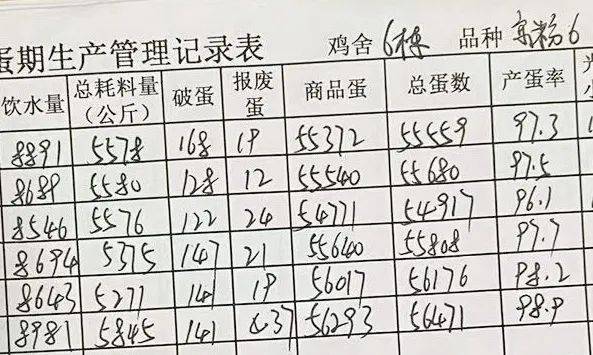 蛋期生产管理记录表 鸡舍 6栋 品种 京粉6
饮水量 总耗料量(公斤) 破蛋 报废蛋 商品蛋 总蛋数 产蛋率
8891 5578 168 19 55372 55559 97.3
8689 5580 128 12 55540 55680 97.5
8546 5576 122 24 54771 54917 96.1
8694 5375 147 21 55640 55808 97.7
8643 5271 141 19 56017 56176 98.2
8981 5845 141 37 56293 56471 98.9